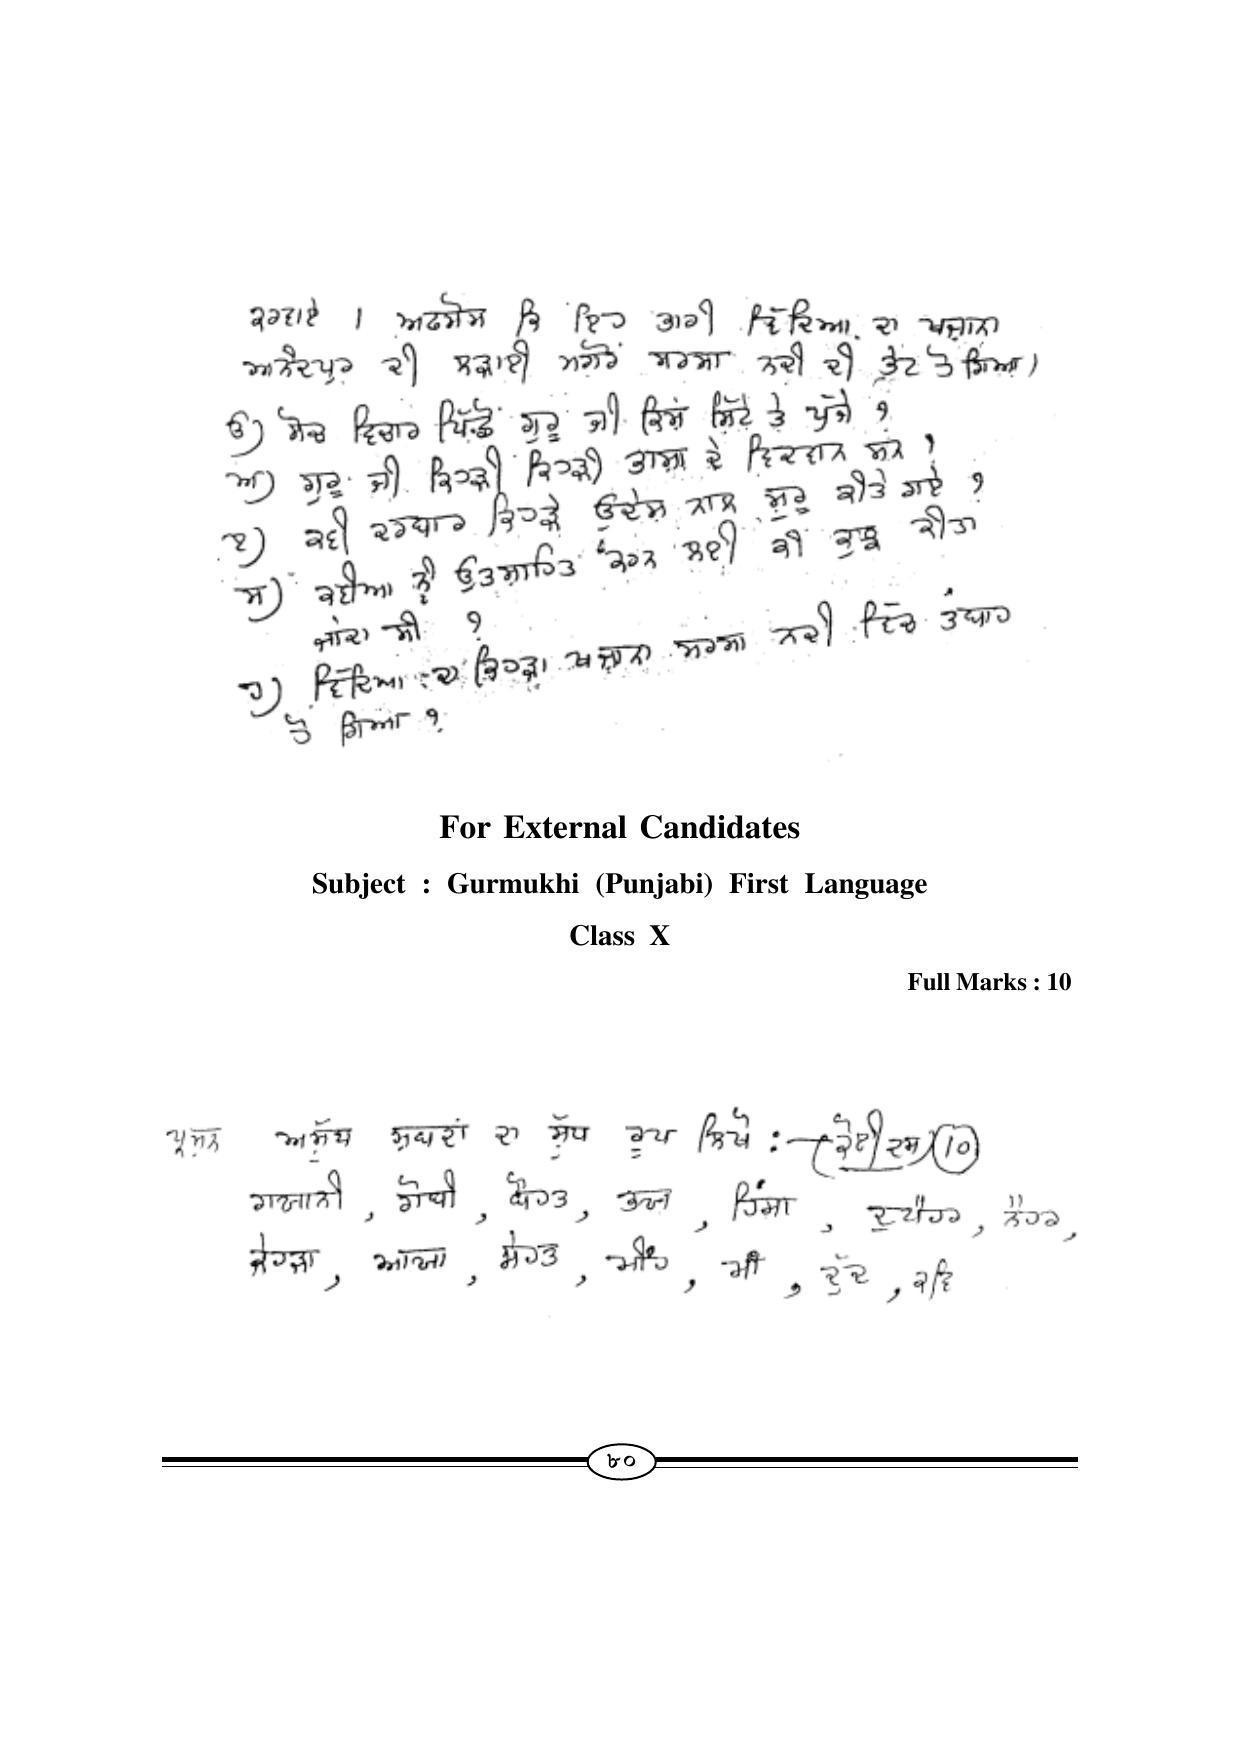 ਕਰਵਾਏ । ਅਫਸੋਸ ਕਿ ਇਹ ਭਾਰੀ ਵਿੱਦਿਆ ਦਾ ਖਜ਼ਾਨਾ
ਅਨੰਦਪੁਰ ਦੀ ਲੜਾਈ ਮਗੋਂ ਸਰਸਾ ਨਦੀ ਦੀ ਭੇਟ ਹੋ ਗਿਆ।
ੳ) ਸੋਚ ਵਿਚਾਰ ਪਿੱਛੋਂ ਗੁਰੂ ਜੀ ਕਿਸ ਸਿੱਟੇ ਤੇ ਪੁੱਜੇ ?
ਅ) ਗੁਰੂ ਜੀ ਕਿਹੜੀ ਕਿਹੜੀ ਭਾਸ਼ਾ ਦੇ ਵਿਦਵਾਨ ਸਨ ?
ੲ) ਕਵੀ ਦਰਬਾਰ ਕਿਹੜੇ ਉਦੇਸ਼ ਨਾਲ ਸ਼ੁਰੂ ਕੀਤੇ ਗਏ ?
ਸ) ਕਵੀਆ ਨੂੰ ਉਤਸ਼ਾਹਿਤ ਕਰਨ ਲਈ ਕੀ ਕੁਝ ਕੀਤਾ
ਜਾਂਦਾ ਸੀ ?
ਹ) ਵਿੱਦਿਆ ਦਾ ਕਿਹੜਾ ਖਜ਼ਾਨਾ ਸਰਸਾ ਨਦੀ ਵਿੱਚ ਤਬਾਹ
ਹੋ ਗਿਆ ?
For External Candidates
Subject : Gurmukhi (Punjabi) First Language
Class X
Full Marks : 10
ਪ੍ਰਸ਼ਨ ਅਸ਼ੁੱਧ ਸ਼ਬਦਾਂ ਦਾ ਸ਼ੁੱਧ ਰੂਪ ਲਿਖੋ :— (ਕੋਈ ਦਸ) 10
ਗਆਨੀ , ਗੋਬੀ , ਬੌਹਤ , ਹਿੰਸਾ , ਦੁਪੈਹਰ , ਨੈਹਰ ,
ਚੇਹੜਾ , ਆਗਆ , ਸੇਹਤ , ਮੀਂਹ , ਸੀ , ਦੁੱਦ , ਕਵਿ
৮০